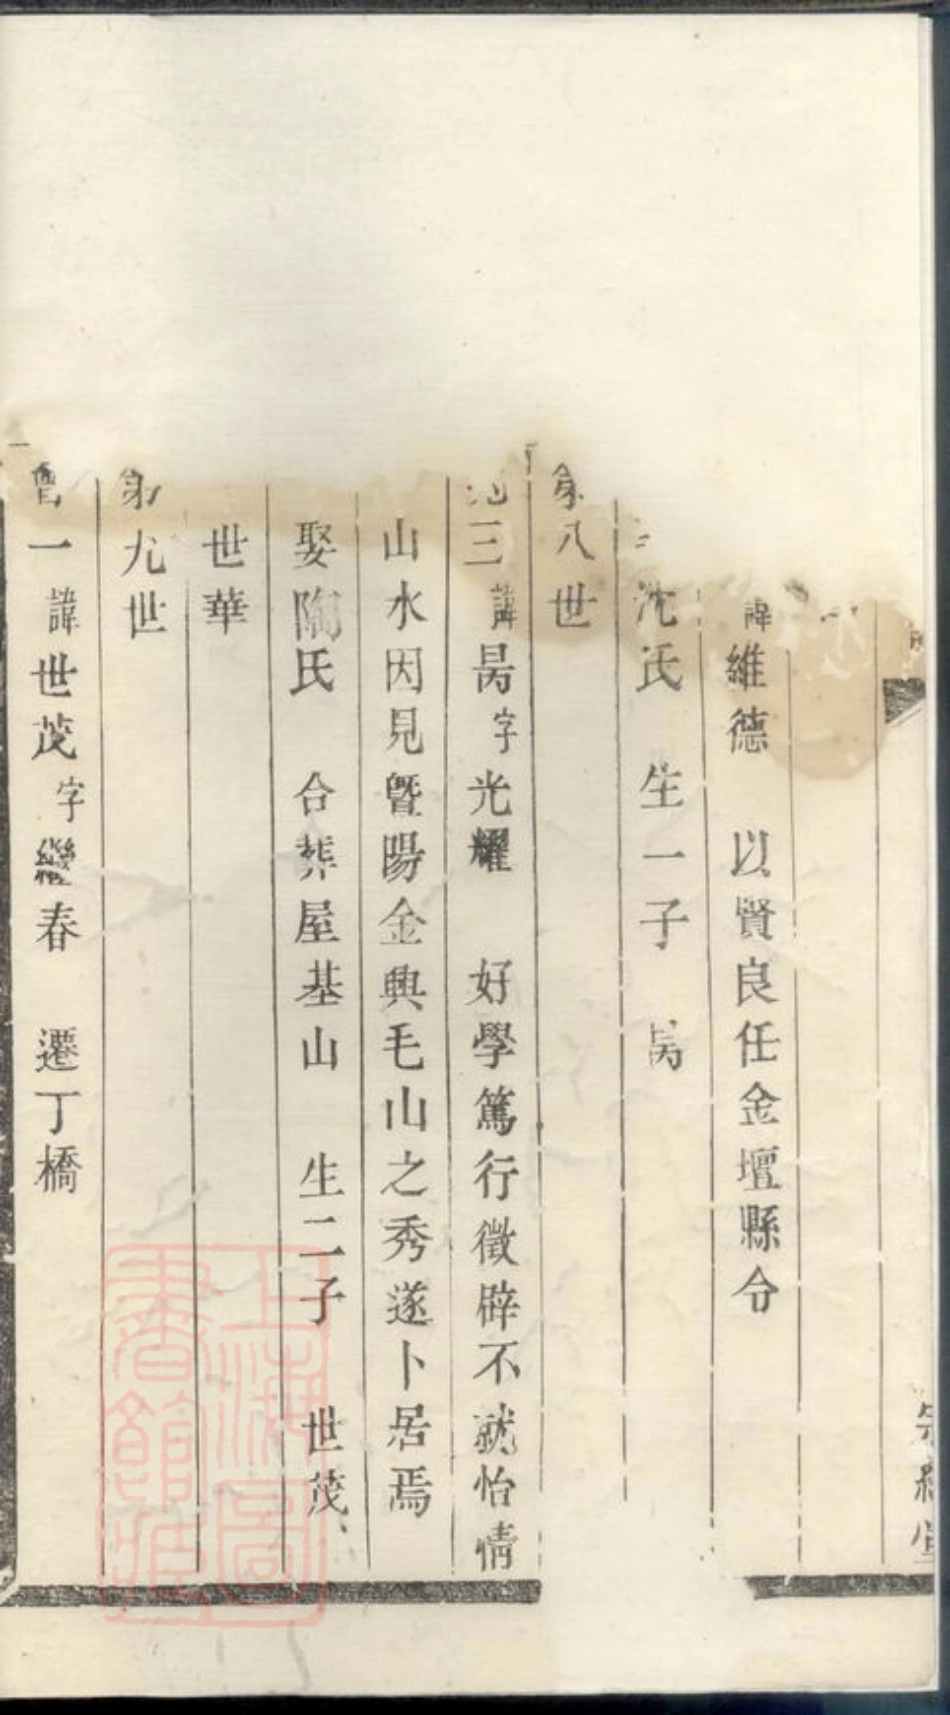 諱維德　以賢良任金壇縣令
沈氏　生一子　昺
第八世
三諱昺字光耀　好學篤行徵辟不就怡情
山水因見暨陽金興毛山之秀遂卜居焉
娶陶氏　合葬屋基山　生二子　世茂、
世華
第九世
一諱世茂字繼春　遷丁橋
上海圖書館藏